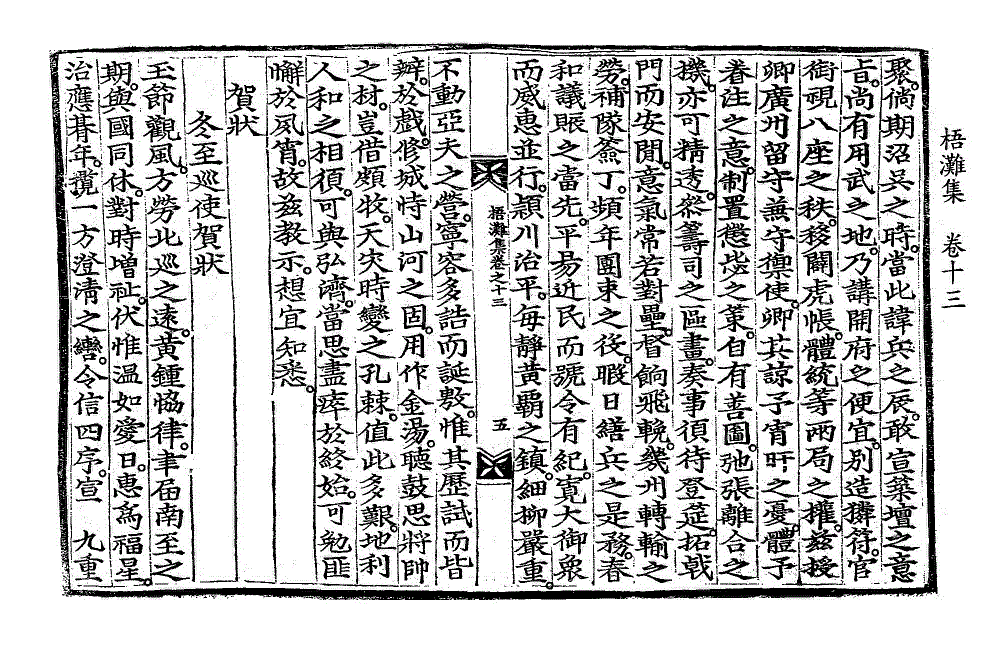 梧灘集 卷十三
聚。倘期沼吳之時。當此諱兵之辰。敢宣築壇之意
旨。尚有用武之地。乃講開府之便宜。別造獜符。官
銜視八座之秩。移闢虎帳。體統等兩局之權。玆授
卿廣州留守兼守禦使。卿其諒予宵旰之憂。體予
眷注之意。制置懲毖之策。自有善圖。弛張離合之
機。亦可精透。叅籌司之區畫。奏事須待登筵。拓戟
門而安閒。意氣常若對壘。督餉飛輓。幾州轉輸之
勞。補隊簽丁。頻年團束之後。暇日繕兵之是務。春
和議賑之當先。平易近民而號令有紀。寬大御衆
而威惠並行。潁川治平。每靜黃覇之鎮。細柳嚴重。
梧灘集卷之十三 五
不動亞夫之營。寧容多誥而誕敷。惟其歷試而皆
辦。於戲。修城恃山河之固。用作金湯。聽鼓思將帥
之材。豈借頗牧。天灾時變之孔棘。值此多艱。地利
人和之相須。可與弘濟。當思盡瘁於終始。可勉匪
懈於夙宵。故玆敎示。想宜知悉。
賀狀
冬至巡使賀狀
玉節觀風。方勞北巡之遠。黃鍾恊律。聿届南至之
期。與國同休。對時增祉。伏惟温如愛日。惠爲福星。
治應朞年。攬一方澄淸之轡。令信四序。宣 九重